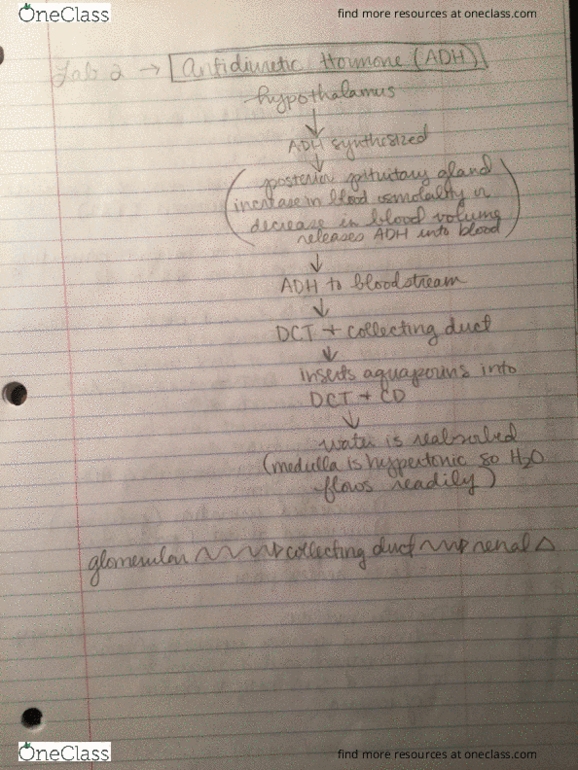 OneClass
find more resources at oneclass.com
Lab 2 → Antidiuretic Hormone (ADH)
hypothalamus
↓
ADH synthesized
↓
(posterior pituitary gland
increase in blood osmolality or
decrease in blood volume
releases ADH into blood)
↓
ADH to bloodstream
↓
DCT + collecting duct
↓
inserts aquaporins into
DCT + CD
↓
water is reabsorbed
(medulla is hypertonic so H2O
flows readily)
glomerular → collecting duct → renal △
OneClass
find more resources at oneclass.com